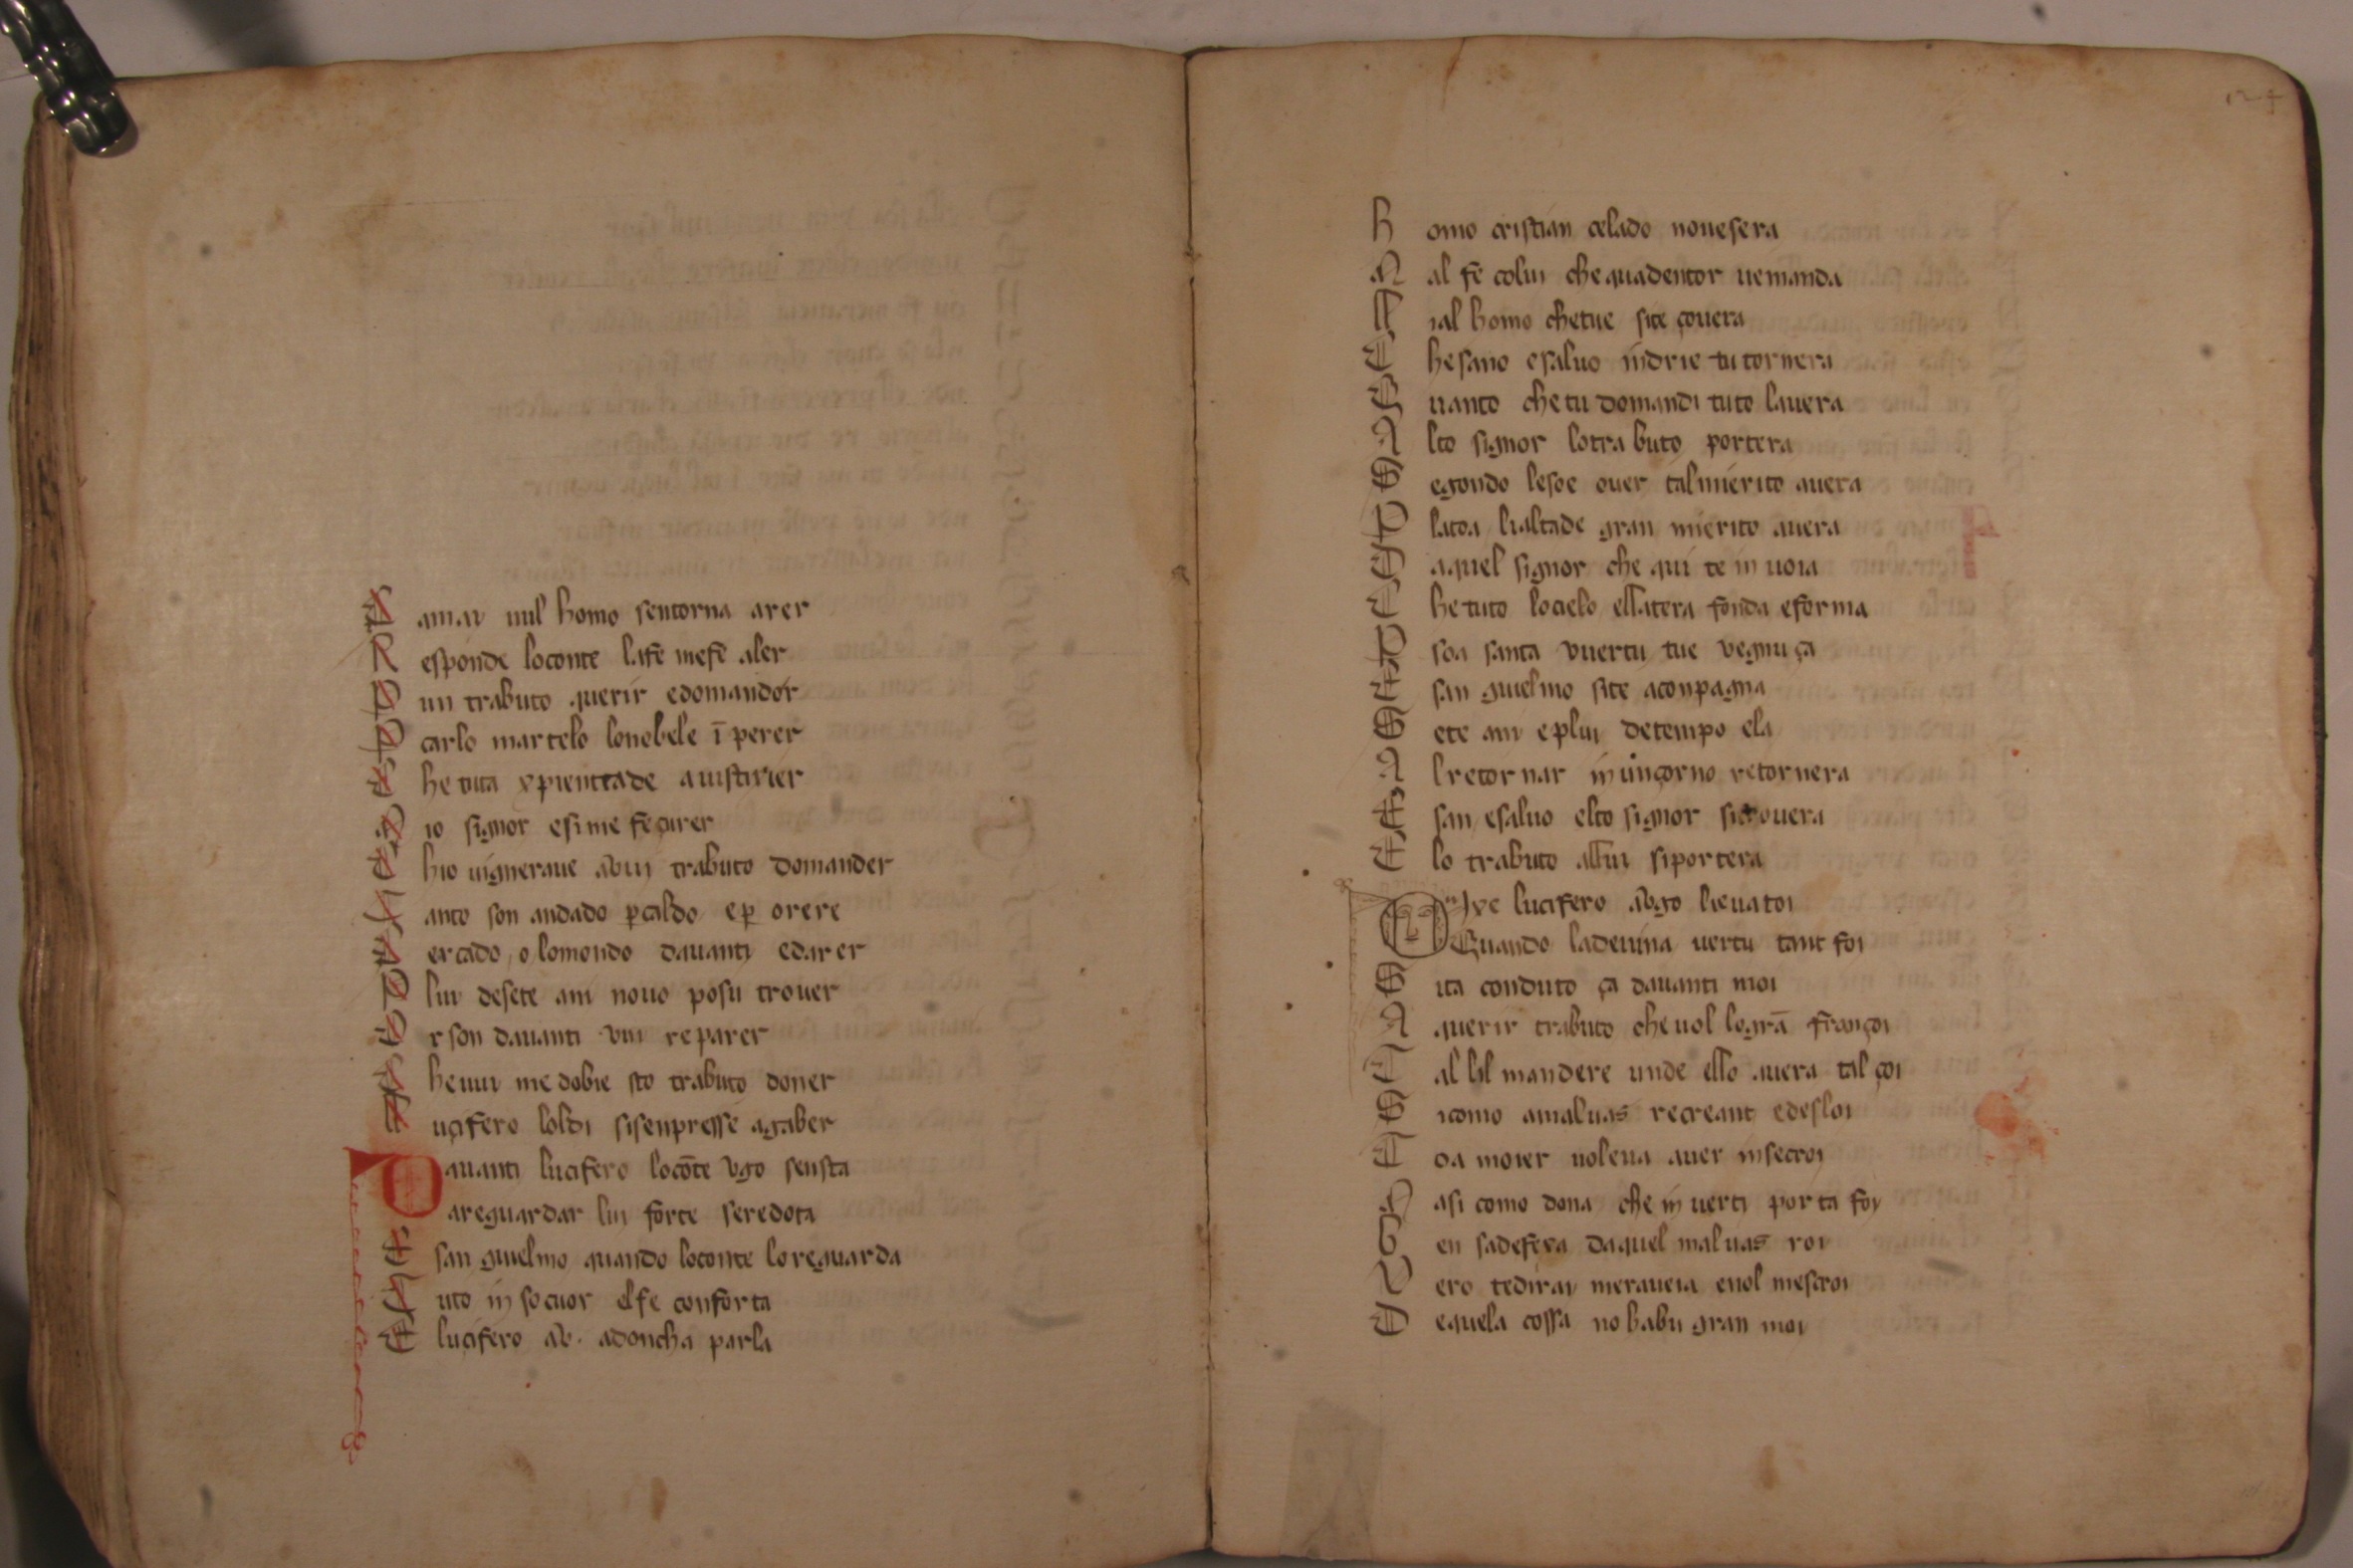 N amai nul homo sentorna arer
R esponde loconte lafe mefe aler
D un trabuto querir edomandor
D carlo martelo lonobele ī perer
C he tuta xpientade a iustixier
D io signor esi me fe çurer
C hio uignerave a vui trabuto domander
T anto son andado p caldo e p orere
C ercado o lomondo davanti edarer
D lui desete ani novo posu trover
O r son davanti vui reparer
C he vui me dobie sto trabuto doner
L ucifero loldi sisenpresse agaber
D avanti lucifero locōte vgo sensta
areguardar lui forte seredota
E san guielmo quando loconte loreguarda
T uto in so cuor elfe conforta
E lucifero a v. adoncha parla
124
H omo cristian celado novesera
N al fe colui che quadentor vemanda
L ial homo chetue site çovera
C he sano e salvo indrie tu tornera
Q uanto che tu domandi tuto lavera
A lto signor lo trabuto portera
S egondo lesoe over tal mierito avera
D la toa lialtade gran mierito avera
D aquel signor che qui te in voia
C he tuto locielo ellatera fonda e forma
D soa santa vuertu tue vegnu ça
E san guielmo site aconpagna
S ete ani e plui detempo ela
A l retornar in un çorno retornera
E san e salvo elto signor sitrovera
E lo trabuto allui siportera
D ixe lucifero a vgo lievatoi
Quando ladevina vertu tant foi
S ita conduto ça davanti moi
A querir trabuto che vol lo grā françoi
T al lil mandere unde ello avera tal çoi
S icomo a malvas recreant e desloi
T oa moier voleva aver in secroi
N asi como dona che in verti porta foy
B en sadefexa da quel malvas roi
V ero tedirai meraveia e nol mescroi
D equela cossa no habu gran moi